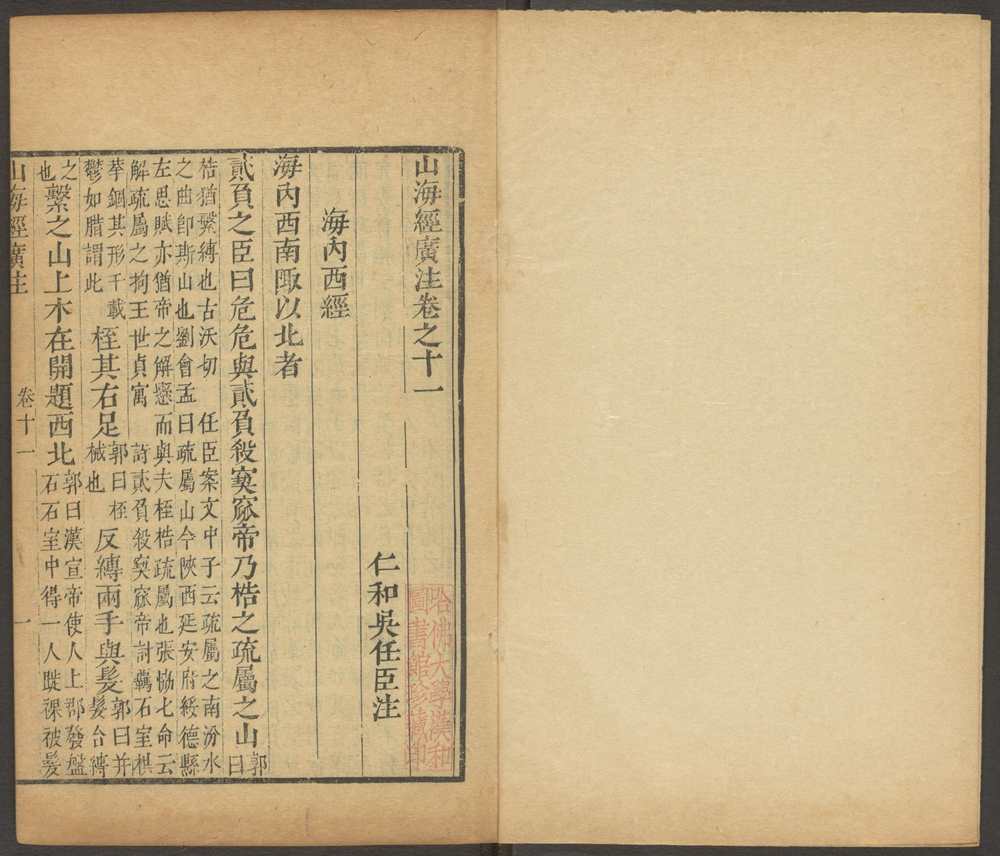 山海經廣注卷之十一
仁和吳任臣注
哈佛大學漢和
圖書館珍藏印
海內西經
海內西南陬以北者
貳負之臣曰危危與貳負殺窫窳帝乃梏之疏屬之山郭曰
梏猶繫縛也古沃切　任臣案文中子云疏屬之南汾水
之曲卽斯山也劉會孟曰疏屬山今陝西延安府綏德縣
左思賦亦猶帝之解懸而與夫桎梏疏屬也張協七命云
解疏屬之拘王世貞寓　詩貳負殺窫窳帝討羈石室棋
拲錮其形千載
鬱如腊謂此
桎其右足
郭曰桎
械也
反縛兩手與髮
郭曰并
髮合縛
之
也
繫之山上木在開題西北
郭曰漢宣帝使人上郡發盤
石石室中得一人跣祼被髮
山海經廣注
卷十一
一